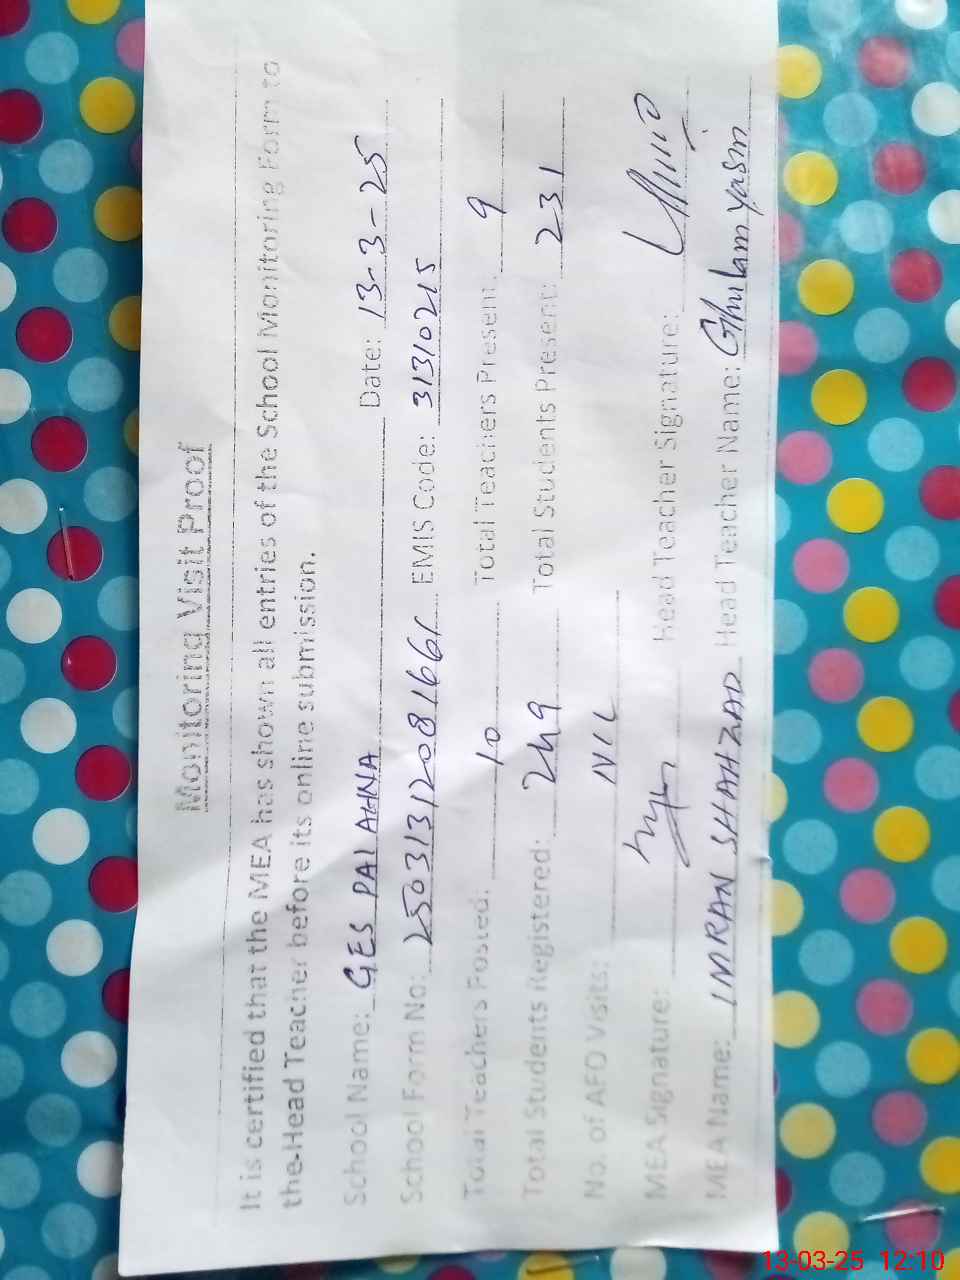 Monitoring Visit Proof
It is certified that the MEA has shown all entries of the School Monitoring Form to
the Head Teacher before its online submission.
School Name: GES PAI AHNA Date: 13-3-25
School Form No: 25031312081661 EMIS Code: 31310215
Total Teachers Posted: 10 Total Teachers Present: 9
Total Students Registered: 249 Total Students Present: 231
No. of AEO Visits: NIL
MEA Signature: Head Teacher Signature:
MEA Name: IMRAN SHAHZAD Head Teacher Name: Ghulam Yasin
13-03-25 12:10